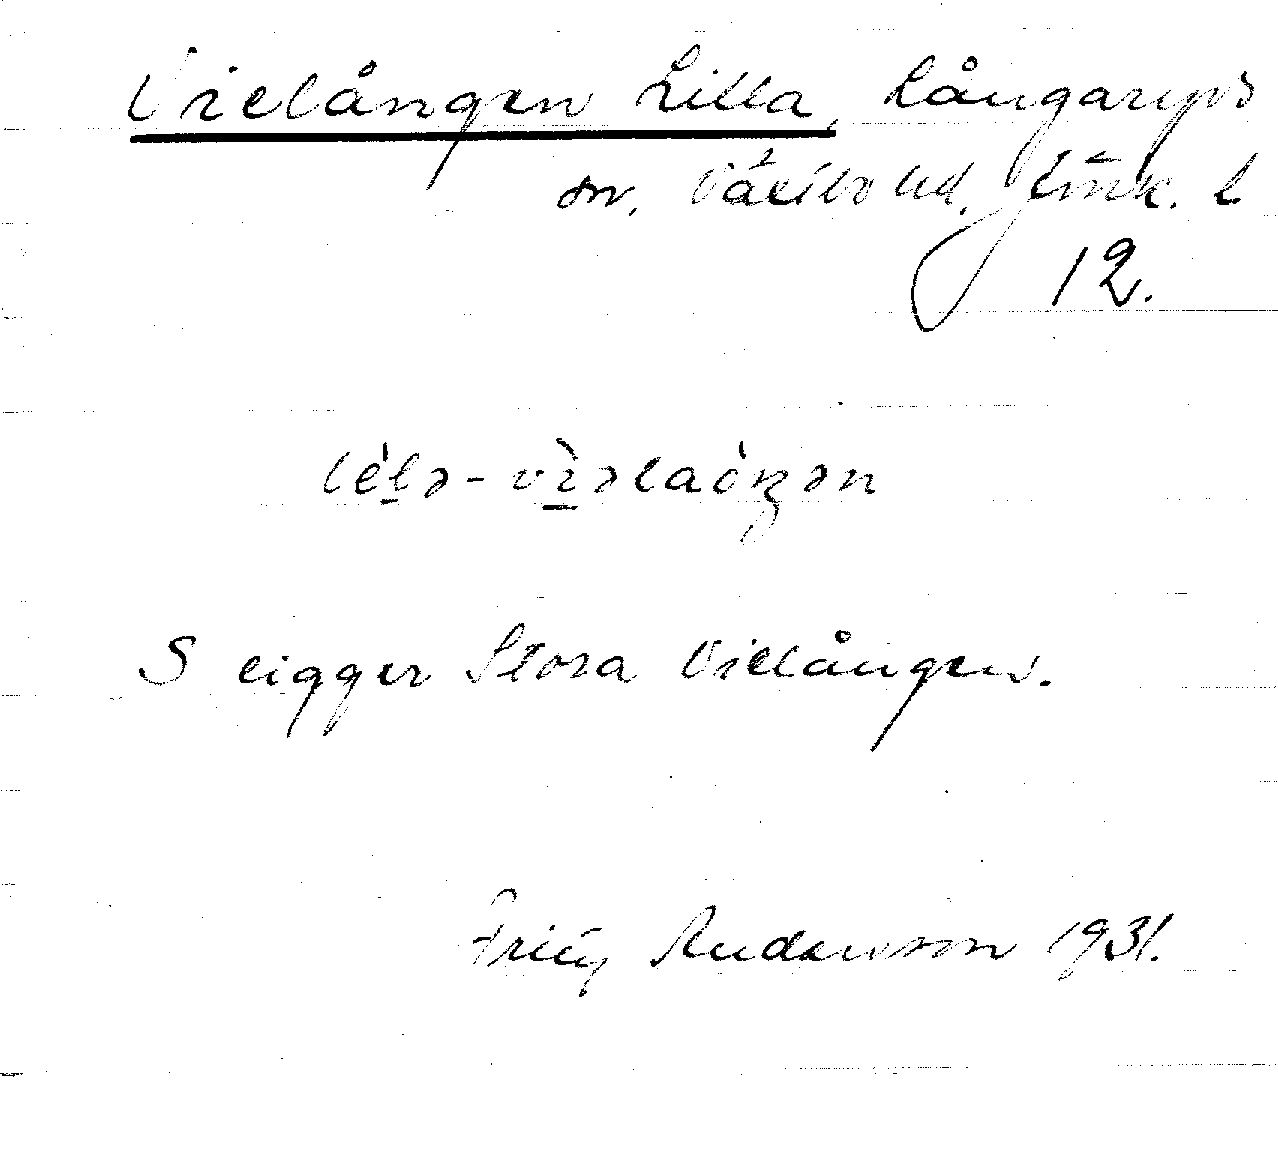 Vielången Lilla, Långaryds
sn. Västbo hd. Jönk. l.
12.
lélə-vìəlaóŋən
S ligger Stora Vielången.
Andersson 1931.